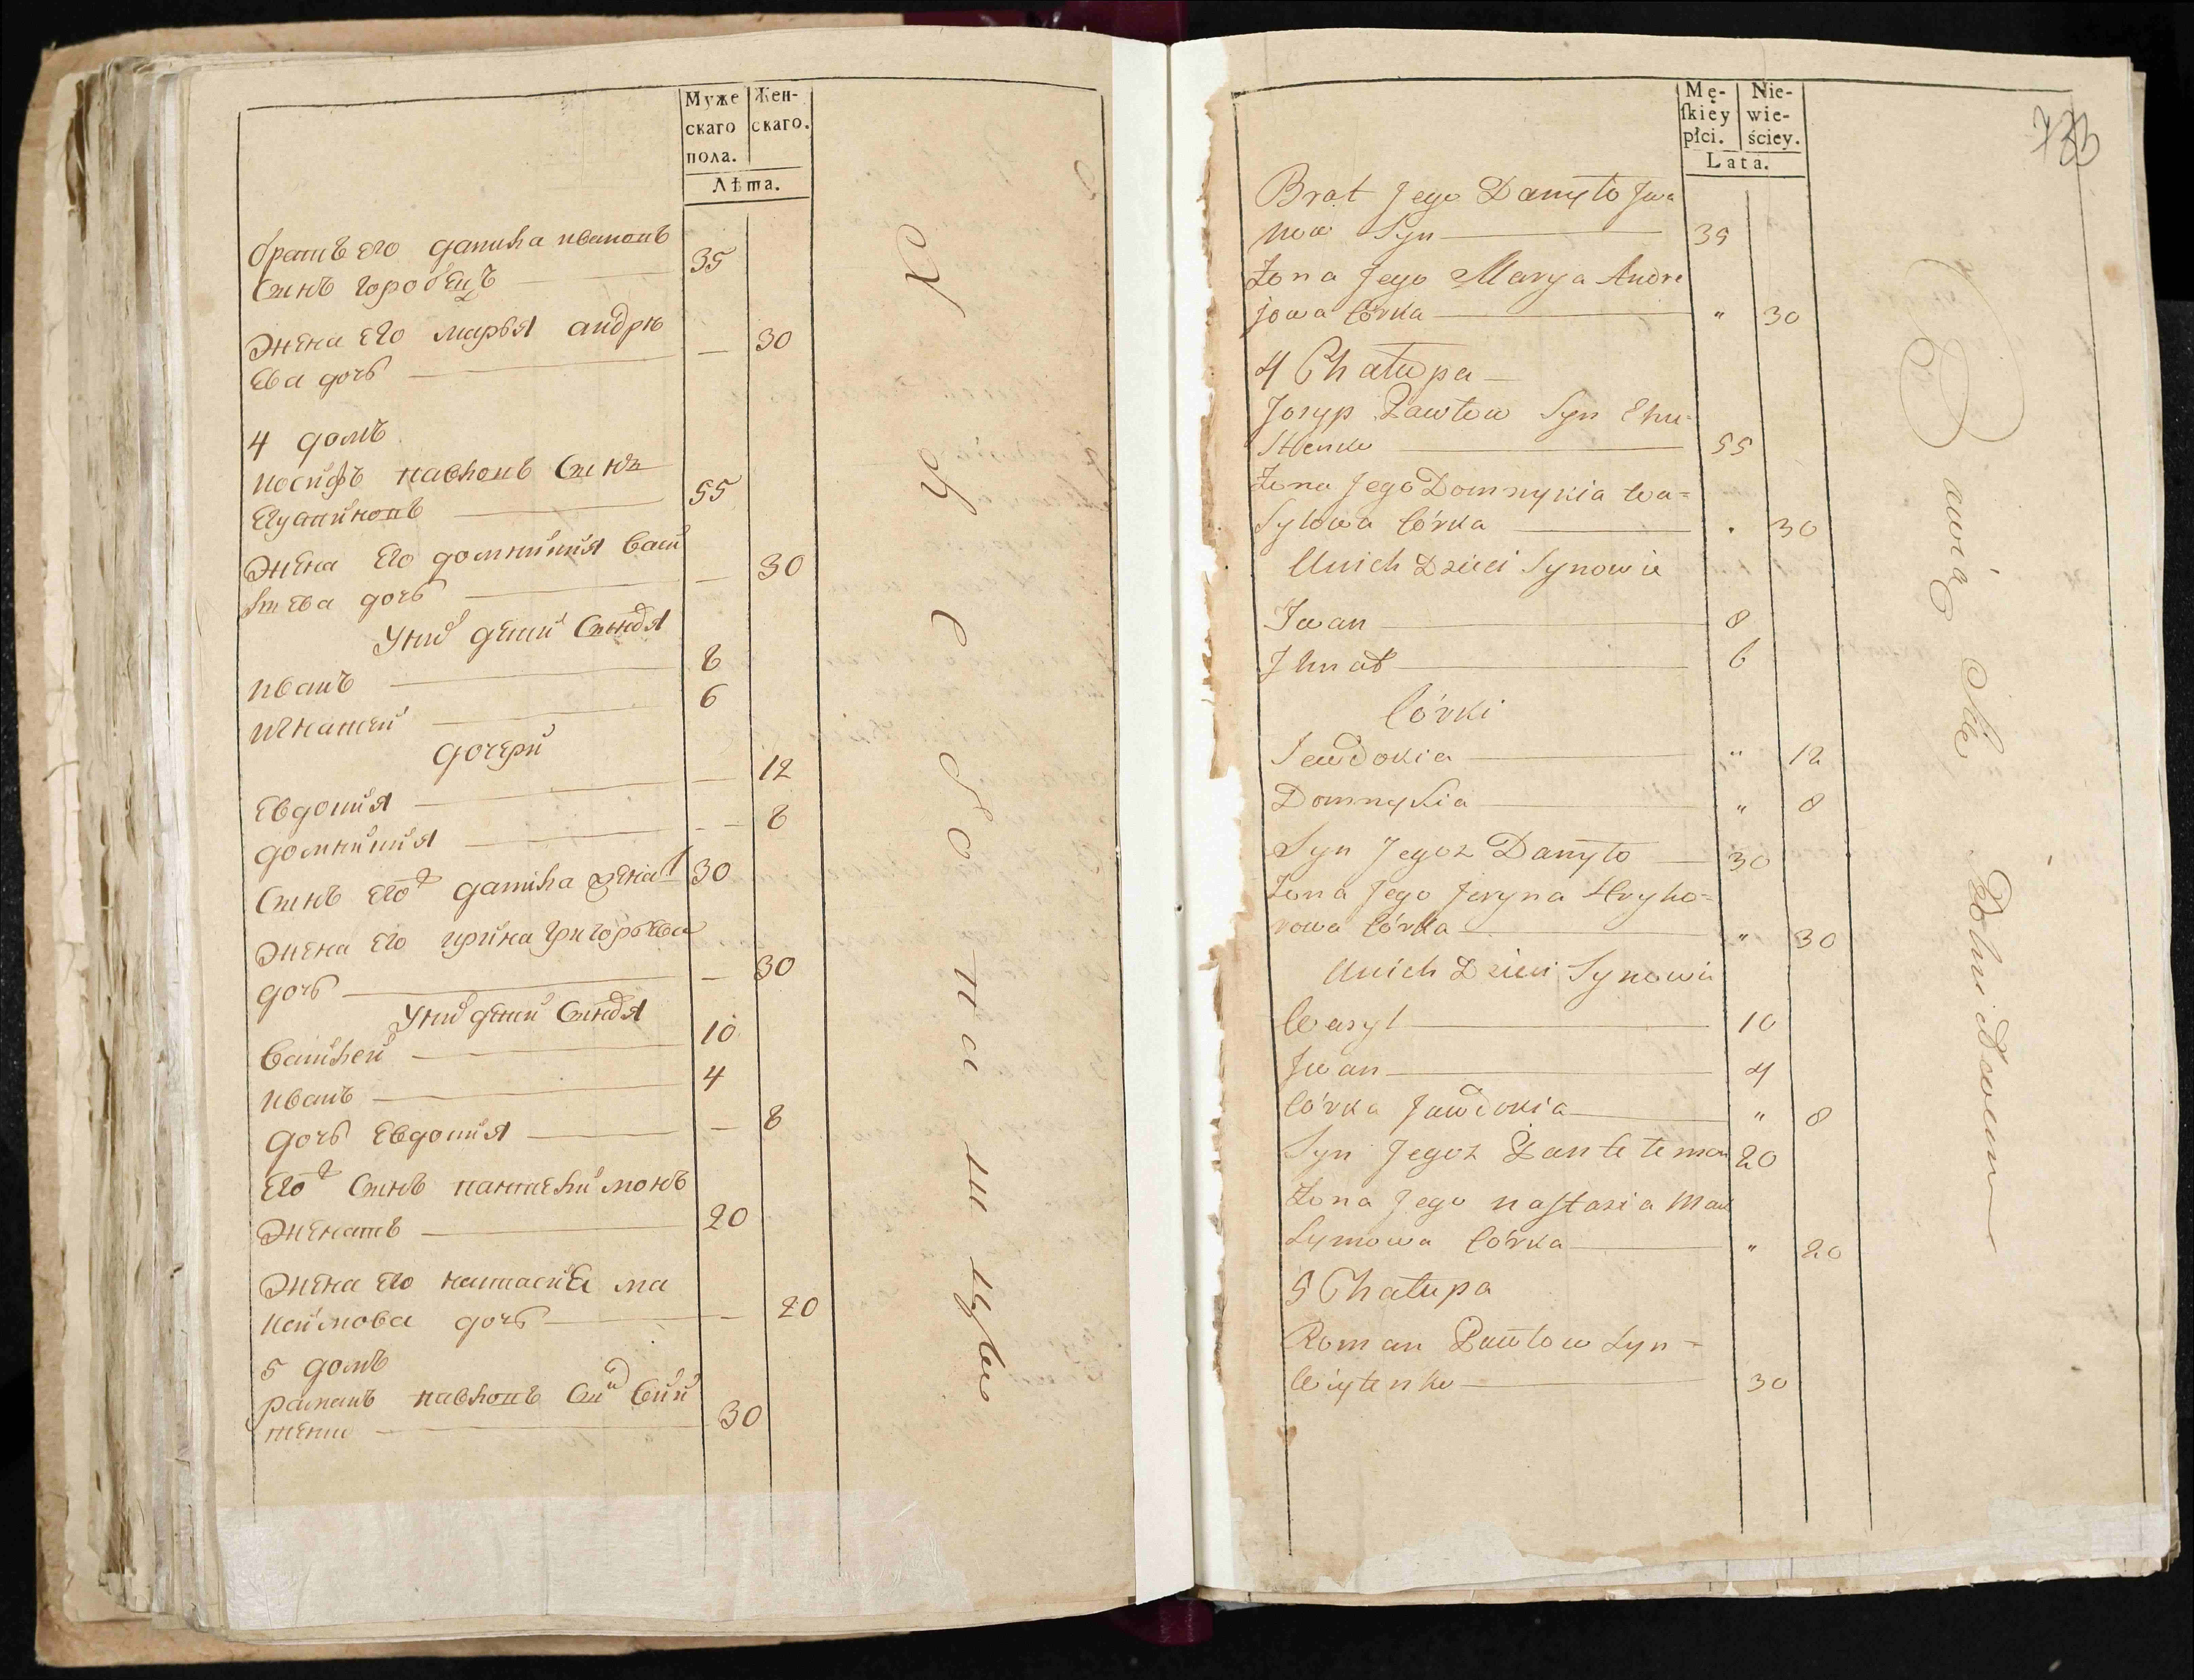 Муже
скаго
пола.
Жен-
скаго.
Лѣта.
братъ его данила ивановъ
Синъ горобецъ 35
Жена его марья андрѣ
ева дочь — 30
4 домъ
иосифъ павловъ Синъ
55
Жена его домникия васи
лиева дочь — 30
У них дети Синовя
иванъ 8
игнатей 6
дочери
Евдокия — 12
домникия — 8
Синъ его ж данила женат 30
Жена его ирина григорьева
дочь — 30
У них дети Синовя
Василей 10
иванъ 4
дочь Евдокия — 8
его ж Синъ пантелимонъ
Женатъ 20
Жена его настасия ма
ксимова дочь — 20
5 домъ
романъ павловъ Син
30
Mę-
ſkiéy
płci.
Nie-
wie-
ściey.
Lata.
733
Brat Jego Danyło Jwa
now Syn 35
Żona Jego Marya Andre
jowa Córka " 30
4 Chałupa
Josyp Pawłow Syn Ehu-
55
Żona Jego Domnykia Wa=
sylowa Córka . 30
Unich Dzieci Synowie
Jwan 8
Jhnat 6
Córki
Jewdokia " 12
Domnykia " 8
Syn Jegoż Danyło 30
Żona Jego Jeryna Hryho=
rowa Córka " 30
Unich Dzieci Synowie
Wasyl 10
Jwan 4
Córka Jawdokia " 8
Syn Jegoż Pantelemon 20
Żona Jego nastasia Mak
symowa Córka " 20
5 Chałupa
Roman Pawłow Syn =
30